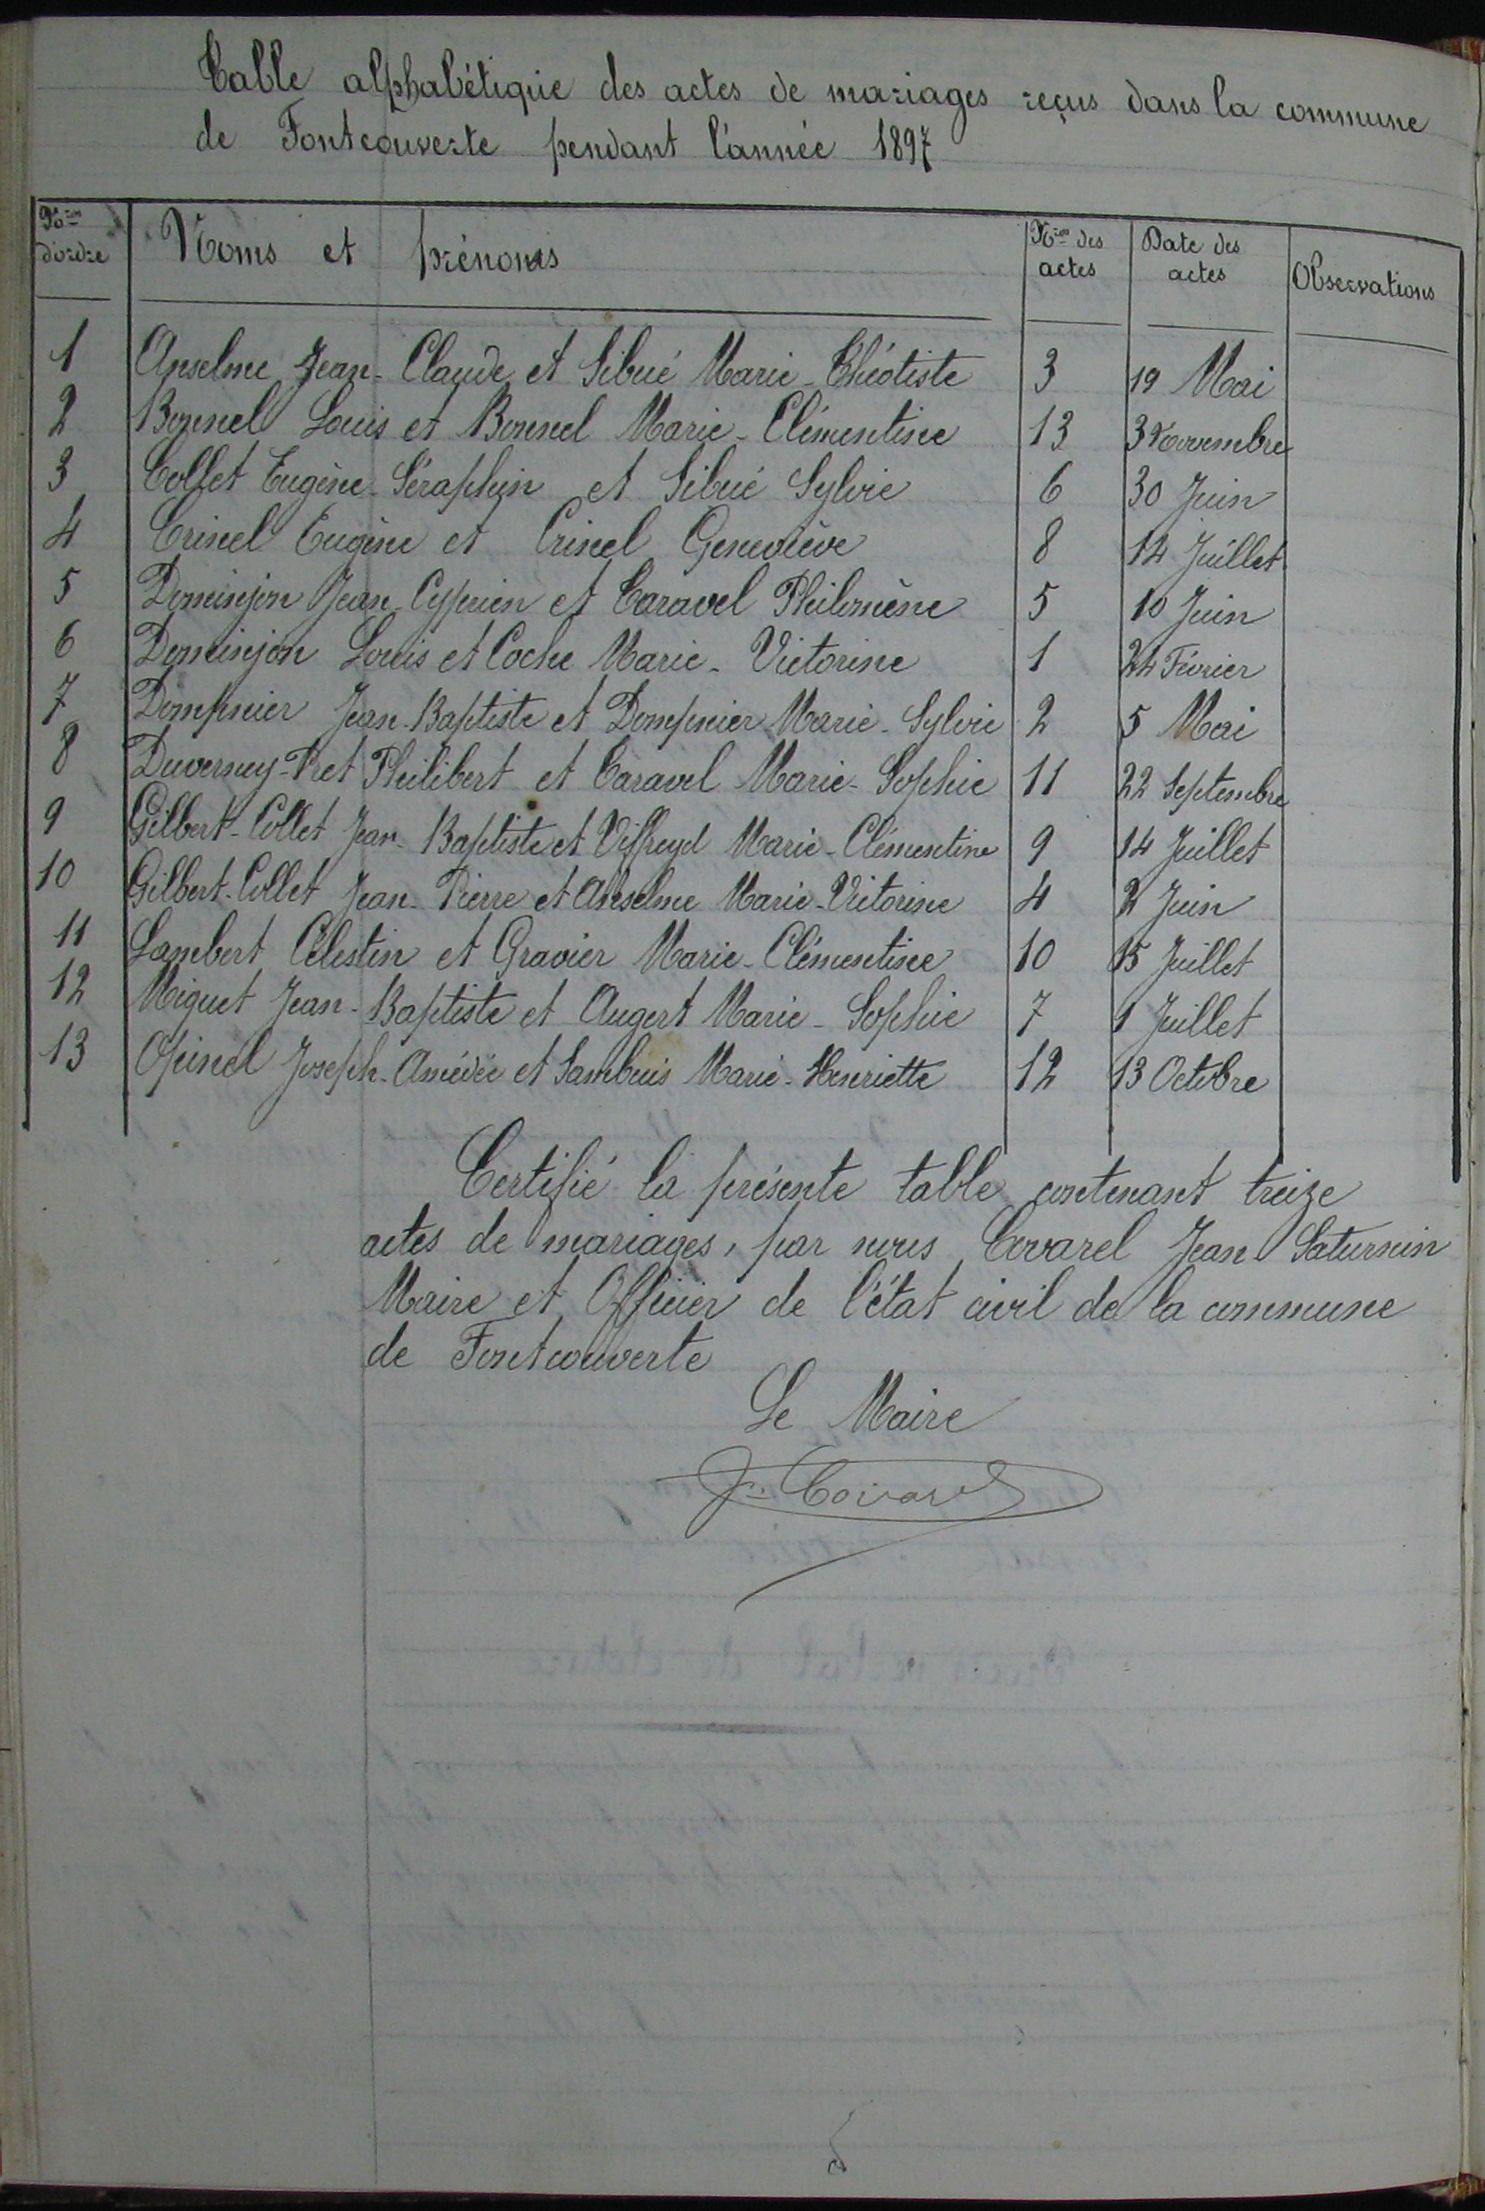 Table alphabétique des actes de mariages reçus dans la commune
de Fontcouverte pendant l'année 1897
Nros d'ordre Noms et prénoms Nros des actes Date des actes Observations
1 Anselme Jean-Claude et Sibué Marie-Théotiste 3 19 Mai
2 Bonnel Louis et Bonnel Marie-Clémentine 13 3 Novembre
3 Collet Eugène-Séraphin et Sibué Sylvie 6 30 Juin
4 Crinel Eugène et Crinel Geneviève 8 14 Juillet
5 Dominjon Jean-Cyprien et Caravel Philomène 5 10 Juin
6 Dominjon Louis et Coche Marie-Victorine 1 24 Février
7 Dompnier Jean-Baptiste et Dompnier Marie-Sylvie 2 5 Mai
8 Duverney-Pret Philibert et Caravel Marie-Sophie 11 22 Septembre
9 Gilbert-Collet Jean-Baptiste et Viffreyd Marie-Clémentine 9 14 Juillet
10 Gilbert-Collet Jean-Pierre et Anselme Marie-Victorine 4 2 Juin
11 Lambert Célestin et Gravier Marie-Clémentine 10 15 Juillet
12 Miguet Jean-Baptiste et Augert Marie-Sophie 7 1 Juillet
13 Opinel Joseph-Amédée et Sambuis Marie-Henriette 12 13 Octobre
Certifié la présente table contenant treize
actes de mariages, par nous Covarel Jean Saturnin
Maire et Officier de l'état civil de la commune
de Fontcouverte
Le Maire
J. Covarel